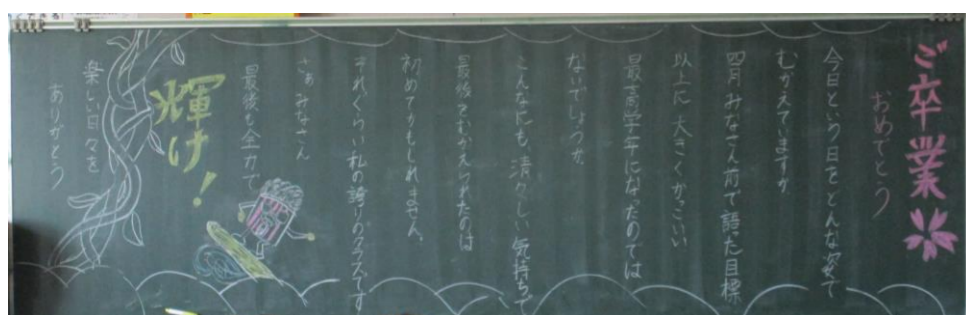 ご卒業
おめでとう
今日という日をどんな姿で
むかえていますか
四月みなさん前で語った目標
以上に大きくかっこいい
最高学年になったのでは
ないでしょうか。
こんなにも清々しい気持ちで
最後をむかえられたのは
初めてかもしれません。
それぐらい私の誇りのクラスです
さぁみなさん
最後も全力で
輝け！
楽しい日々を
ありがとう